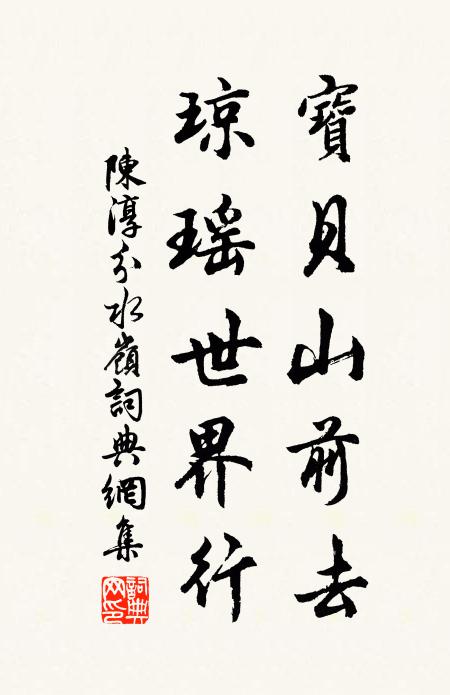 寶貝山前去
琼瑶世界行
陳淳分水嶺詞典網集
詞典网印